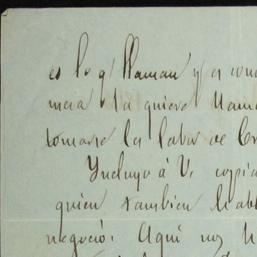 es lo q' llaman y es con
mera la quiere llama
tomarse la labor de
Yncluyo á V. copia
quien tambien habl
negocio. Aquí no